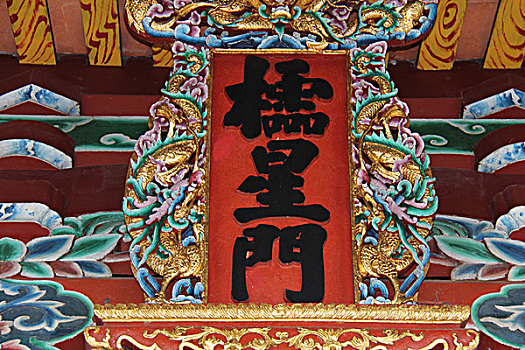 櫺星門